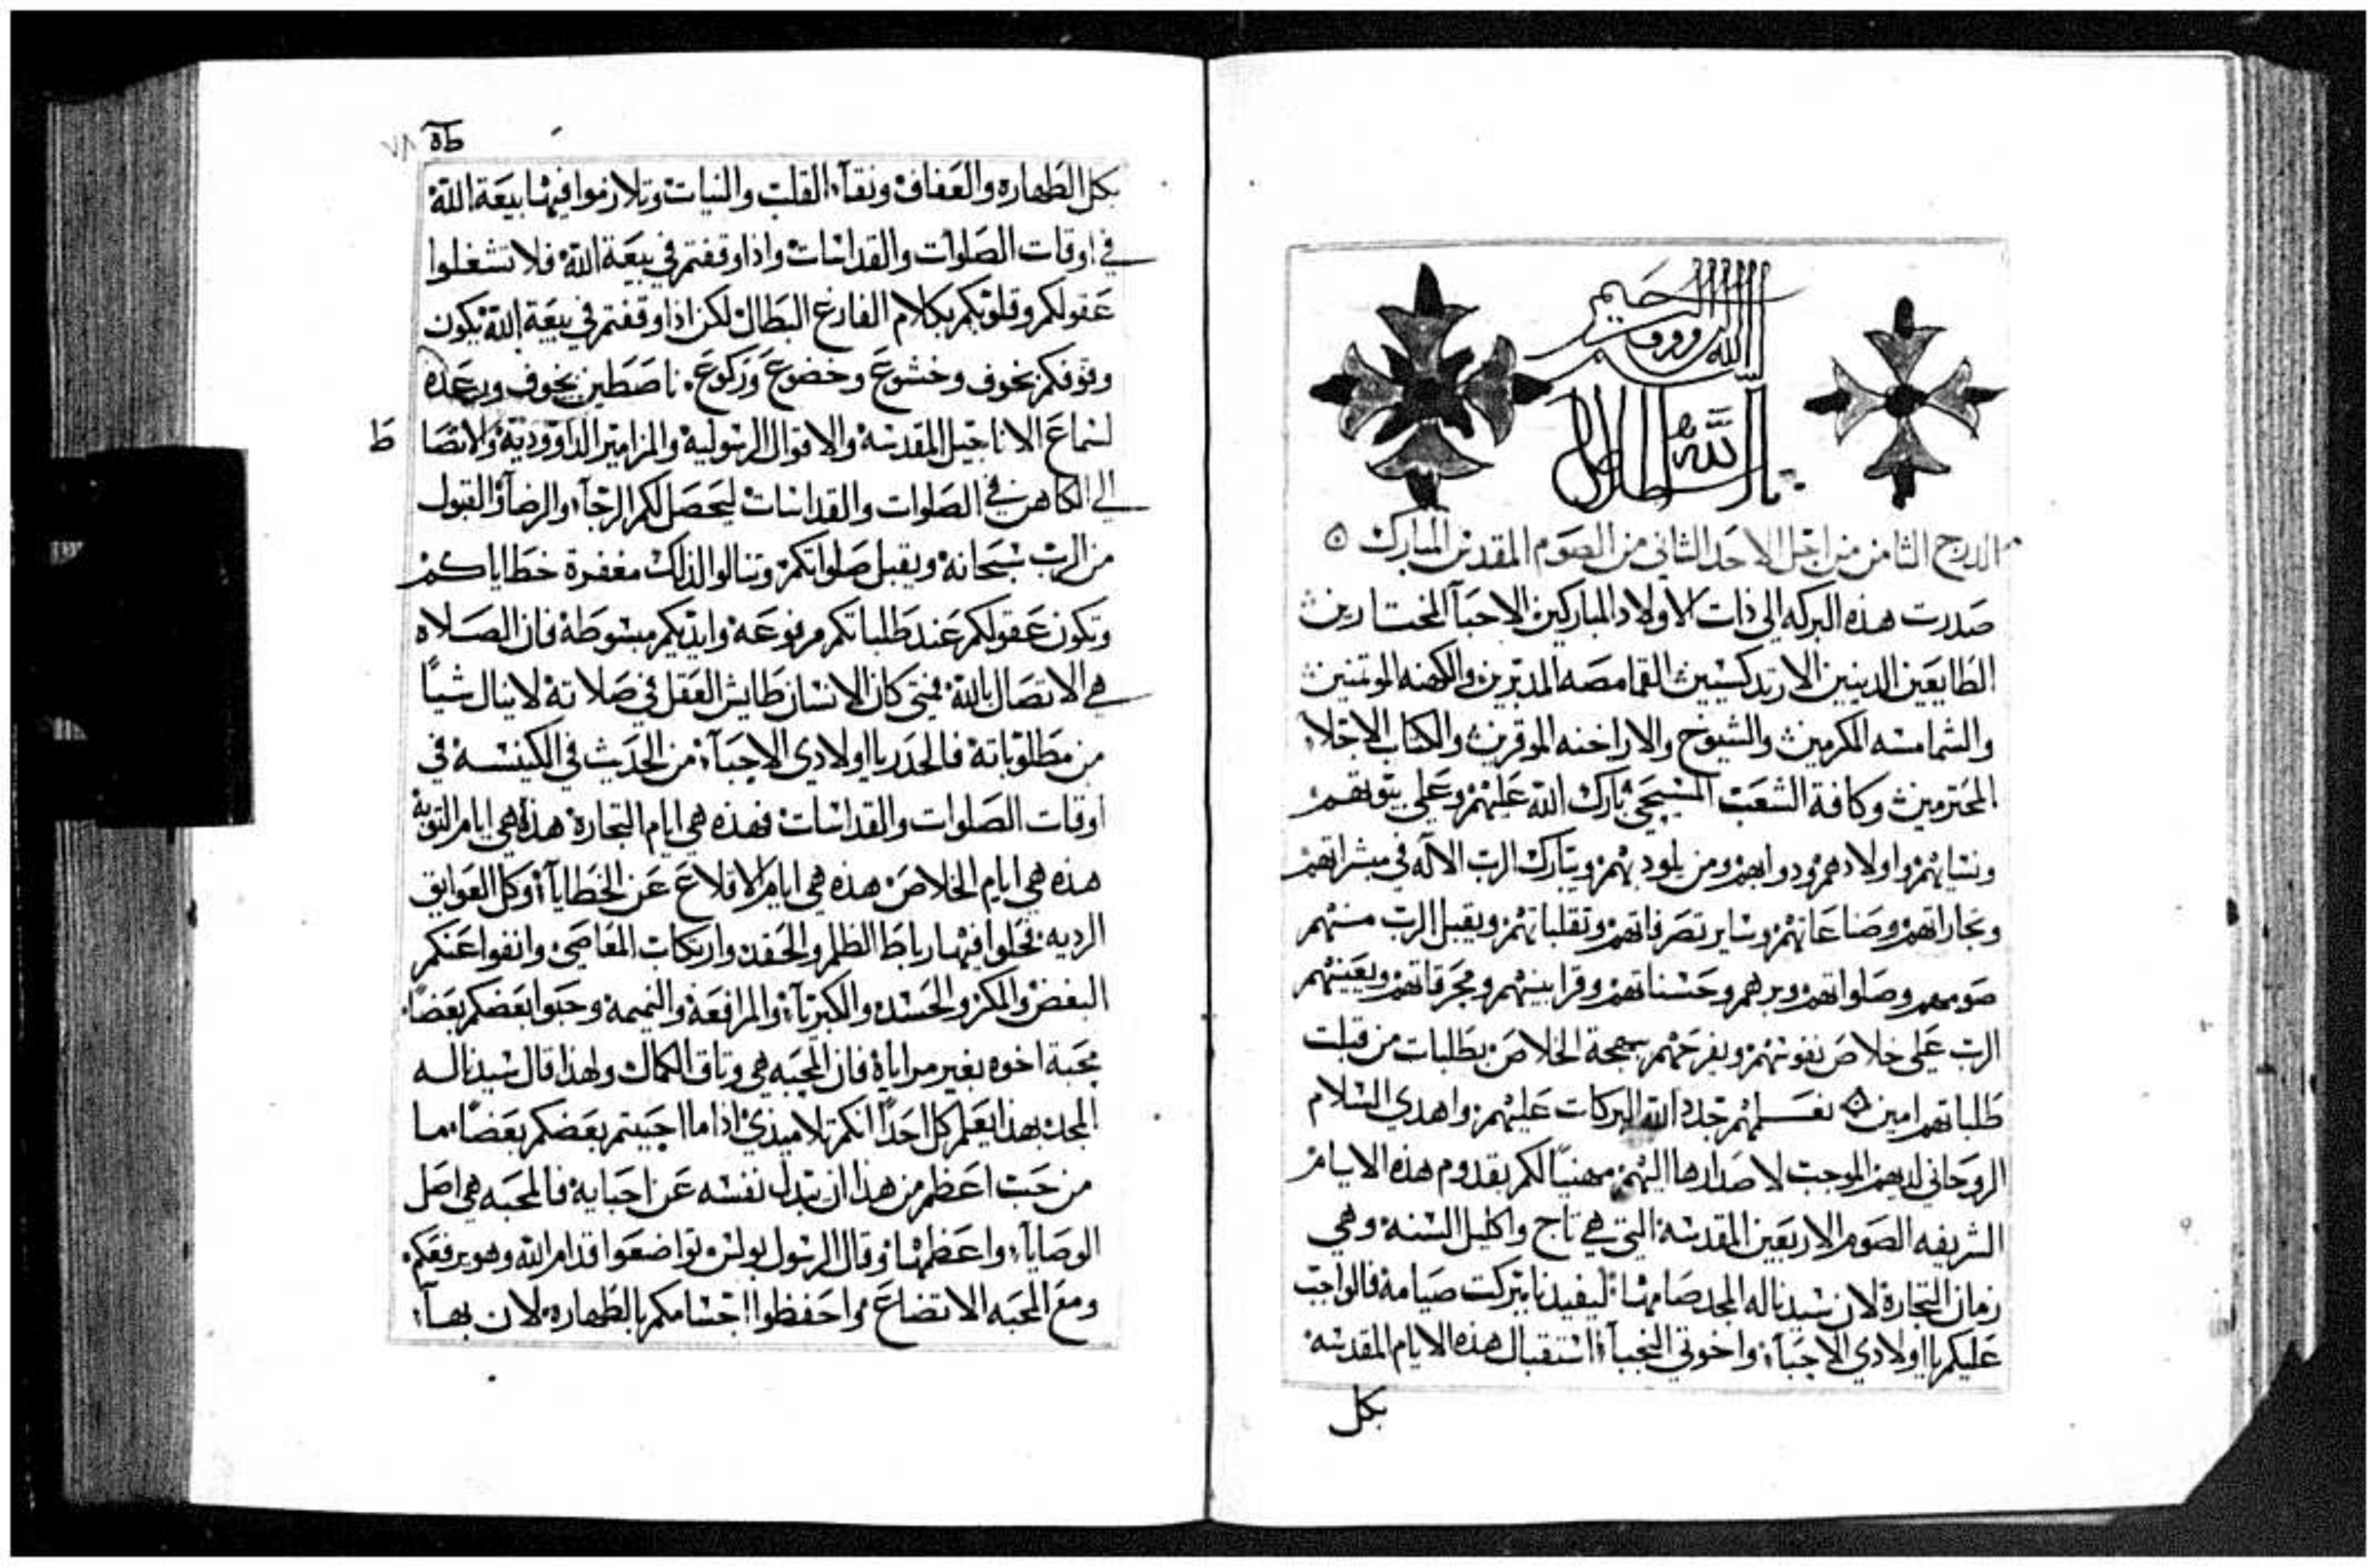 الله الرووف الرحيم
الدرج الثامن من اجل الاحد الثاني من الصوم المقدس المبارك
صدرت هذه البركه الي ذات الاولاد المباركين الاحبآ المختارين
الطايعين الدينين الارتدكسيين القمامصه المدبرين والكهنه الموتمنين
والشمامسه المكرمين والشيوخ والاراخنه الموقرين والكتاب الاجلاء
المحترمين وكافة الشعب المسيحي بارك الله عليهم وعلي بيوتهم
ونسايهم واولادهم ودوابهم ومن يلود بهم ويتبارك الرب الاله في مبشراتهم
وتجاراتهم وصناعاتهم وساير تصرفاتهم وتقلباتهم ويقبل الرب منهم
صومهم وصلواتهم وبرهم وحسناتهم وقرابينهم ومحرقاتهم ويعينهم
الرب علي خلاص نفوسهم ويفرحهم ببهجة الخلاص بطلبات من قبلت
طلباتهم امين نعلمهم تجدد الله البركات عليهم واهدي السلام
الروحاني لديهم الموجب لاصدارها اليهم مهنيًا لكم بقدوم هذه الايام
الشريفه الصوم الاربعين المقدسه التي هي تاج واكليل السنه وهي
زمان التجارة لان سيدنا له المجد صامها ليفيدنا ببركت صيامه فالواجب
عليكم يا اولادي الاحبآء واخوتي النجبآء استقبال هذه الايام المقدسه
بكل
٧٨
بكل الطهاره والعفاف ونقآء القلب والنيات وتلازموا فيها بيعة الله
في اوقات الصلوات والقداسات واذا وقفتم في بيعة الله فلا تشغلوا
عقولكم وقلوبكم بكلام الفارغ البطال لكن اذا وقفتم في بيعة الله يكون
وقوفكم بخوف وخشوع وخضوع وركوع ناصطين بخوف ورعده
لسماع الاناجيل المقدسه والاقوال الرسوليه والمزامير الداووديه والانصا
ط
الي الكاهن في الصلوات والقداسات ليحصل لكم الرجآء والرضآ والقبول
من الرب سبحانه ويقبل صلواتكم وتنالوا لذلك مغفرة خطاياكم
وتكون عقولكم عند طلباتكم مرفوعه وايديكم مبسوطة فان الصلاه
هي الاتصال بالله فمتي كان الانسان طايش العقل في صلاته لاينال شيأ
من مطلوباته فالحدر يا اولادي الاحبآء من الحديث في الكنيسه في
اوقات الصلوات والقداسات فهذه هي ايام التجاره هذه هي ايام التوبه
هذه هي ايام الخلاص هذه هي ايام الاقلاع عن الخطايآء وكل العوايق
الرديه فحلوا فيها رباط الظلم والحقد وارتكاب المعاصي وانفوا عنكم
البغض والمكر والحسد والكبريآء والمرافعه والنميمه وحبوا بعضكم بعضًا
محبة اخوه بغير مراياة فان المحبه هي وتاق الكمال ولهذا قال سيدنا له
المجد بهذا يعلم كل احدًا انكم تلاميذي اذا ما احببتم بعضكم بعضًا ما
من حب اعظم من هذا ان يبدل نفسه عن احبايه فالمحبه هي اصل
الوصايآء واعظمها وقال الرسول بولس تواضعوا قدام الله وهو يرفعكم
ومع المحبه الاتضاع واحفظوا اجسامكم بالطهاره لان بهآء